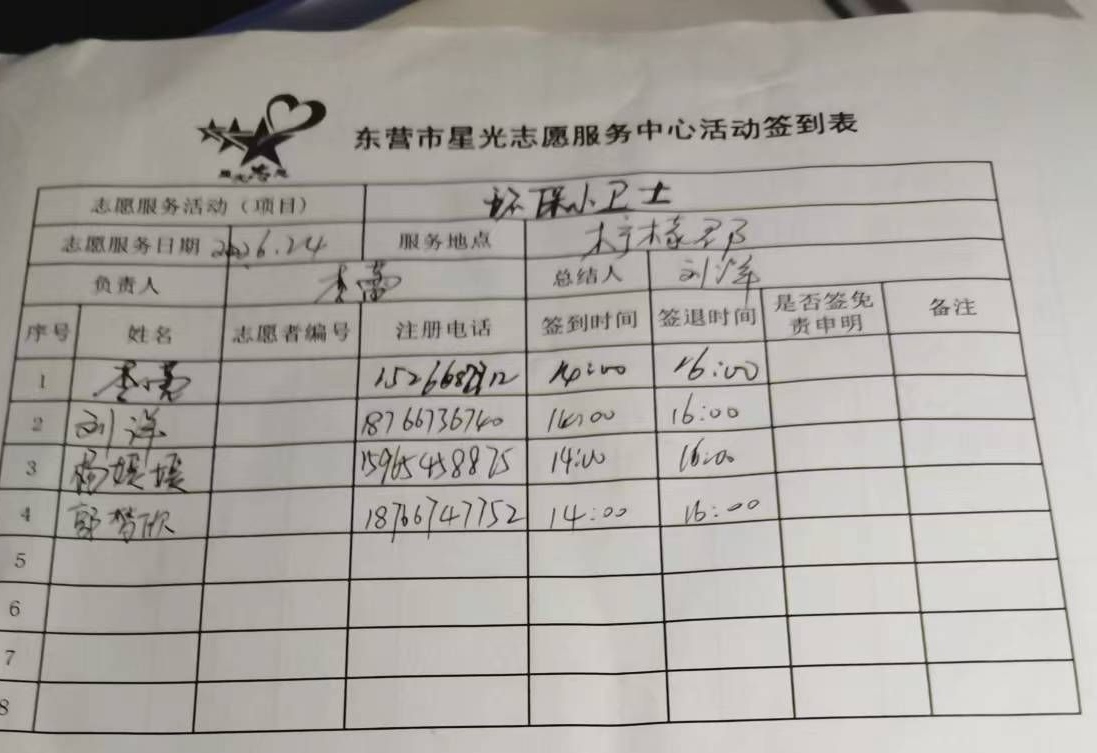 东营市星光志愿服务中心活动签到表
志愿服务活动（项目） 环保小卫士
志愿服务日期 服务地点
负责人 总结人 刘洋
序号 姓名 志愿者编号 注册电话 签到时间 签退时间 是否签免责申明 备注
1 14:00 16:00
2 刘洋 18766736740 14:00 16:00
3 杨媛媛 15965458875 14:00 16:00
4 18766747752 14:00 16:00
5
6
7
8